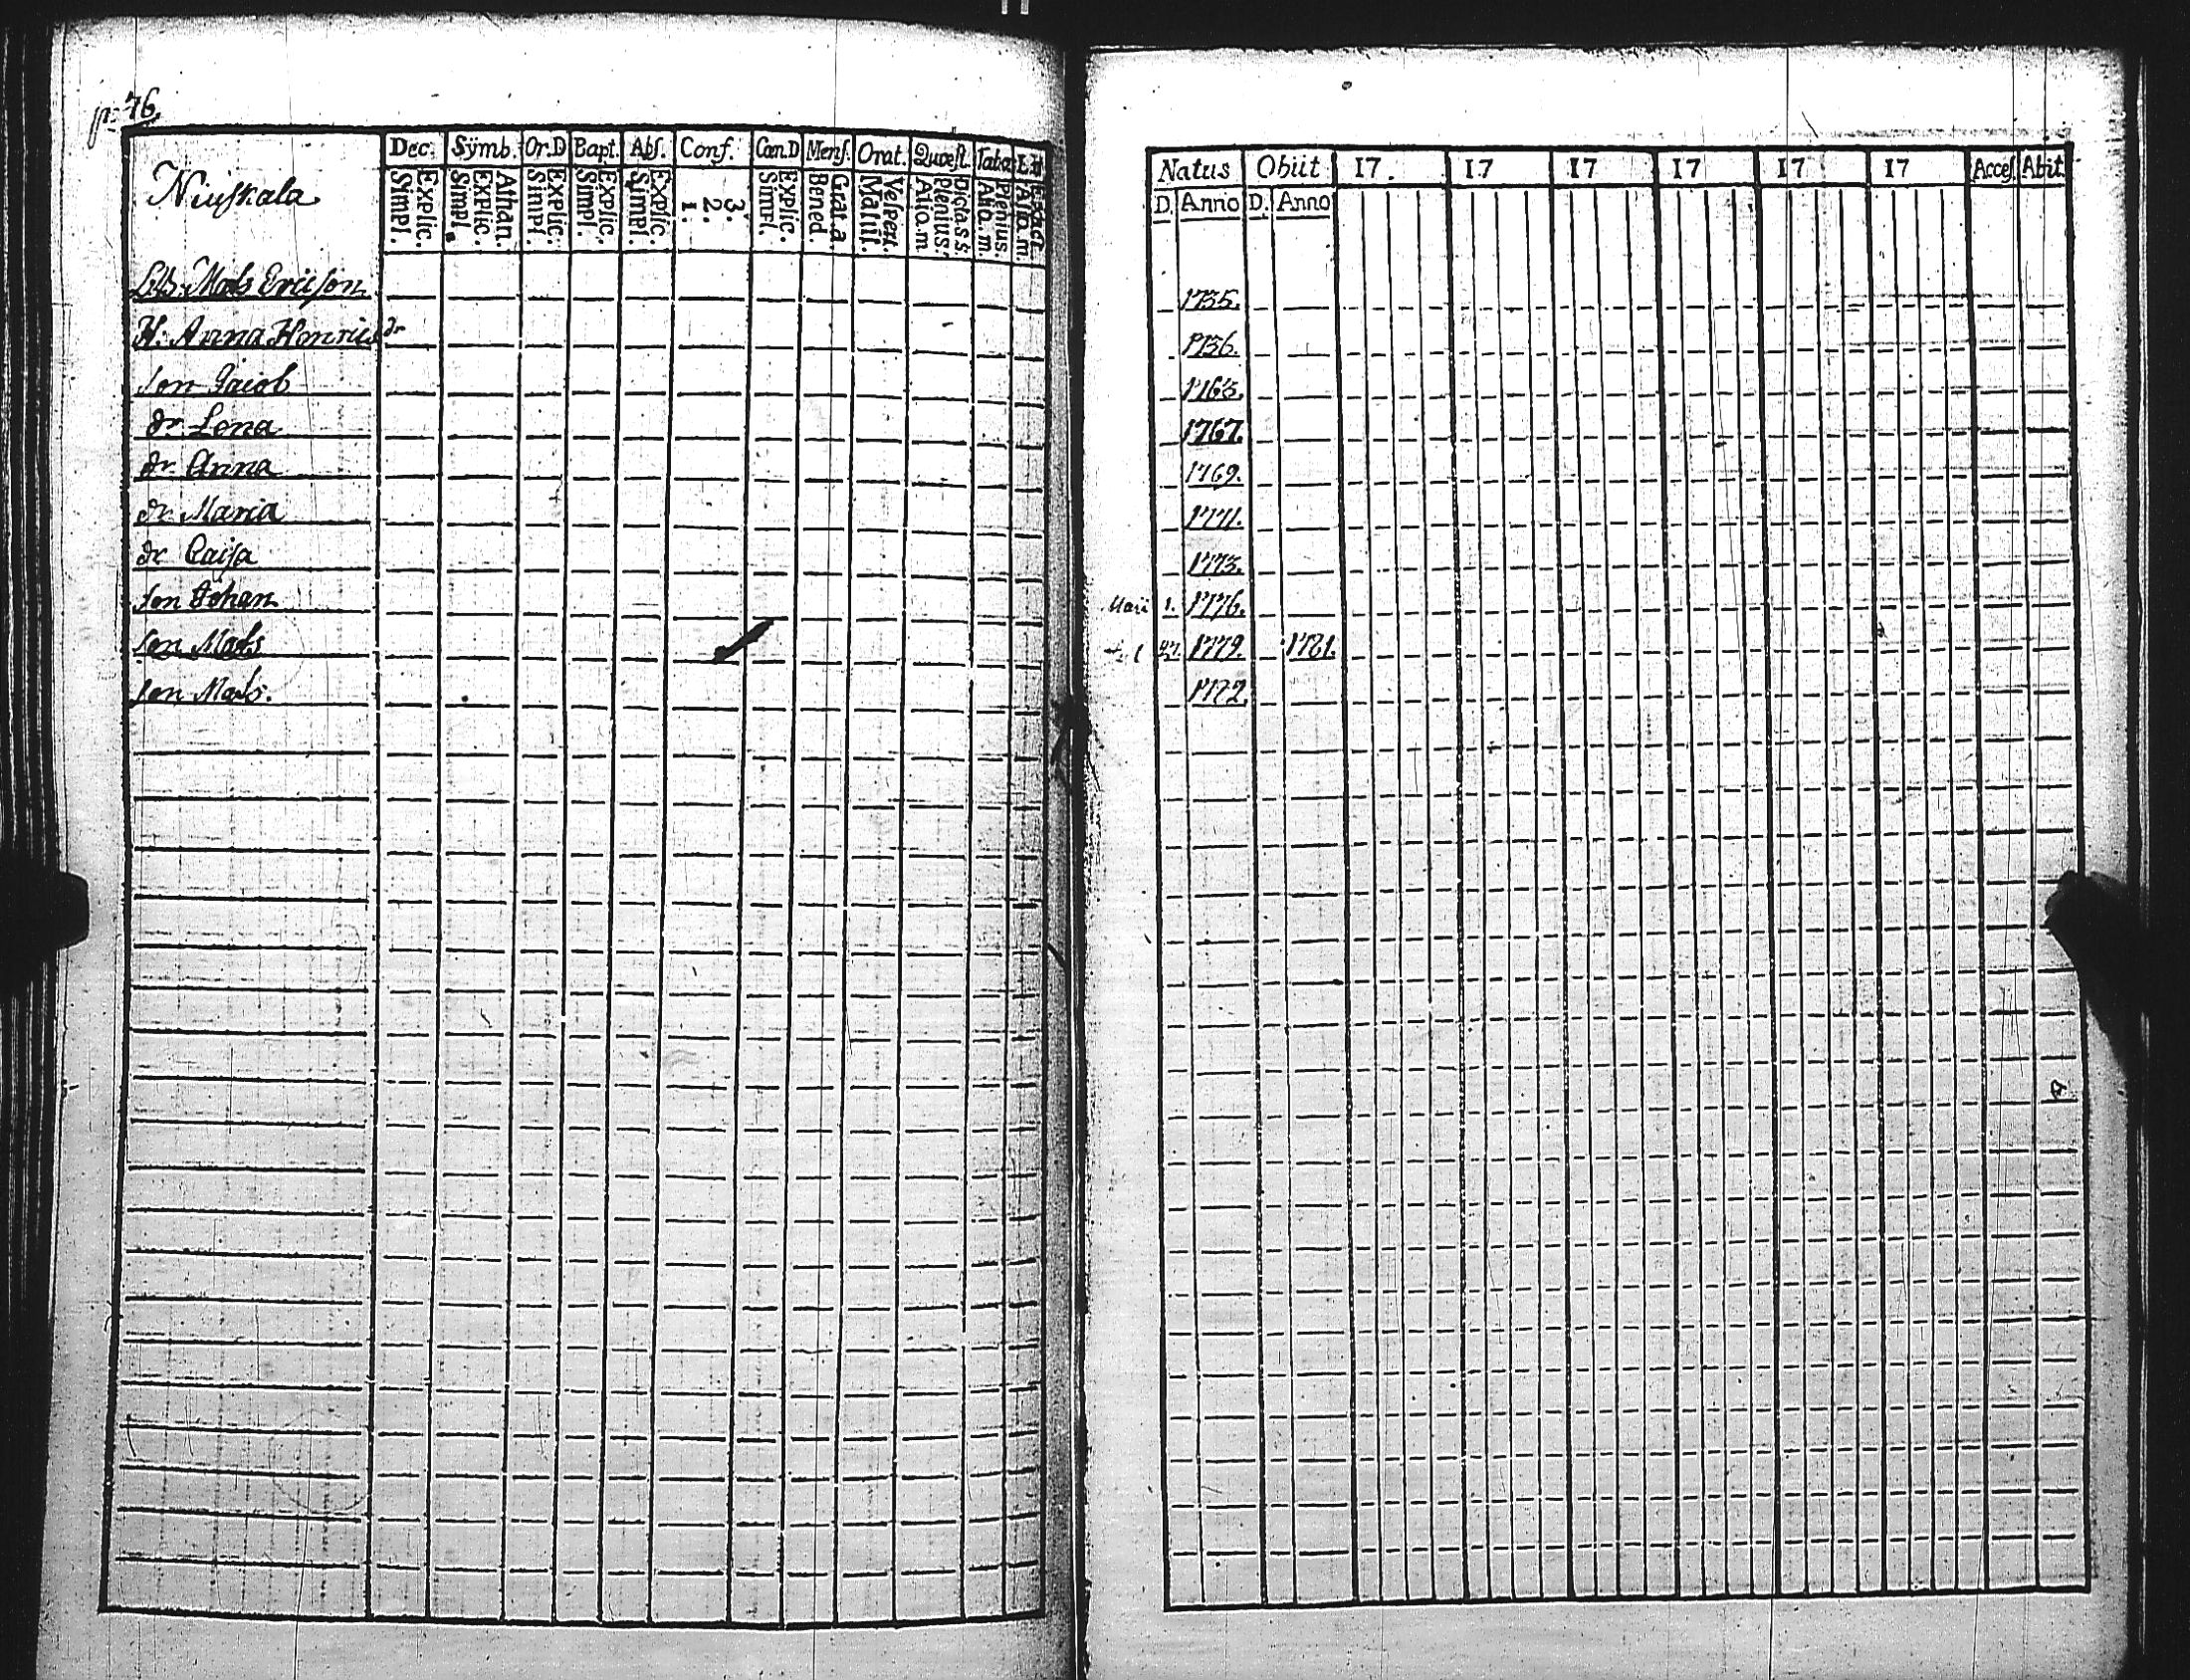 p: 76.
Dec. Sÿmb. Or.D Bapt. Abs. Conf. Can.D Mens. Orat. Quæst. Taba
Niuskala
Simpl. Explic. Simpl. Explic. Athan. Simpl. Explic. Simpl. Explic. Simpl. Explic. 1. 2. 3. Simpl. Explic. Bened. Grat.a Matut. Vesperi. Alio.m Plenius. Dig.a s.s. Alio.m Plenius. Alio.m. Exact.
Mats Ericson
H: Anna Henrics dr
son Jacob
dr Lena
dr Anna
dr Maria
dr Caisa
son Johan
son Mats
son Mats.
Natus Obiit 17 17 17 17 17 17 Acces. Abiit.
D. Anno D. Anno
1735.
1736.
1763.
1767.
1769.
1771.
1773.
Maii 1. 1776.
1779. 1781.